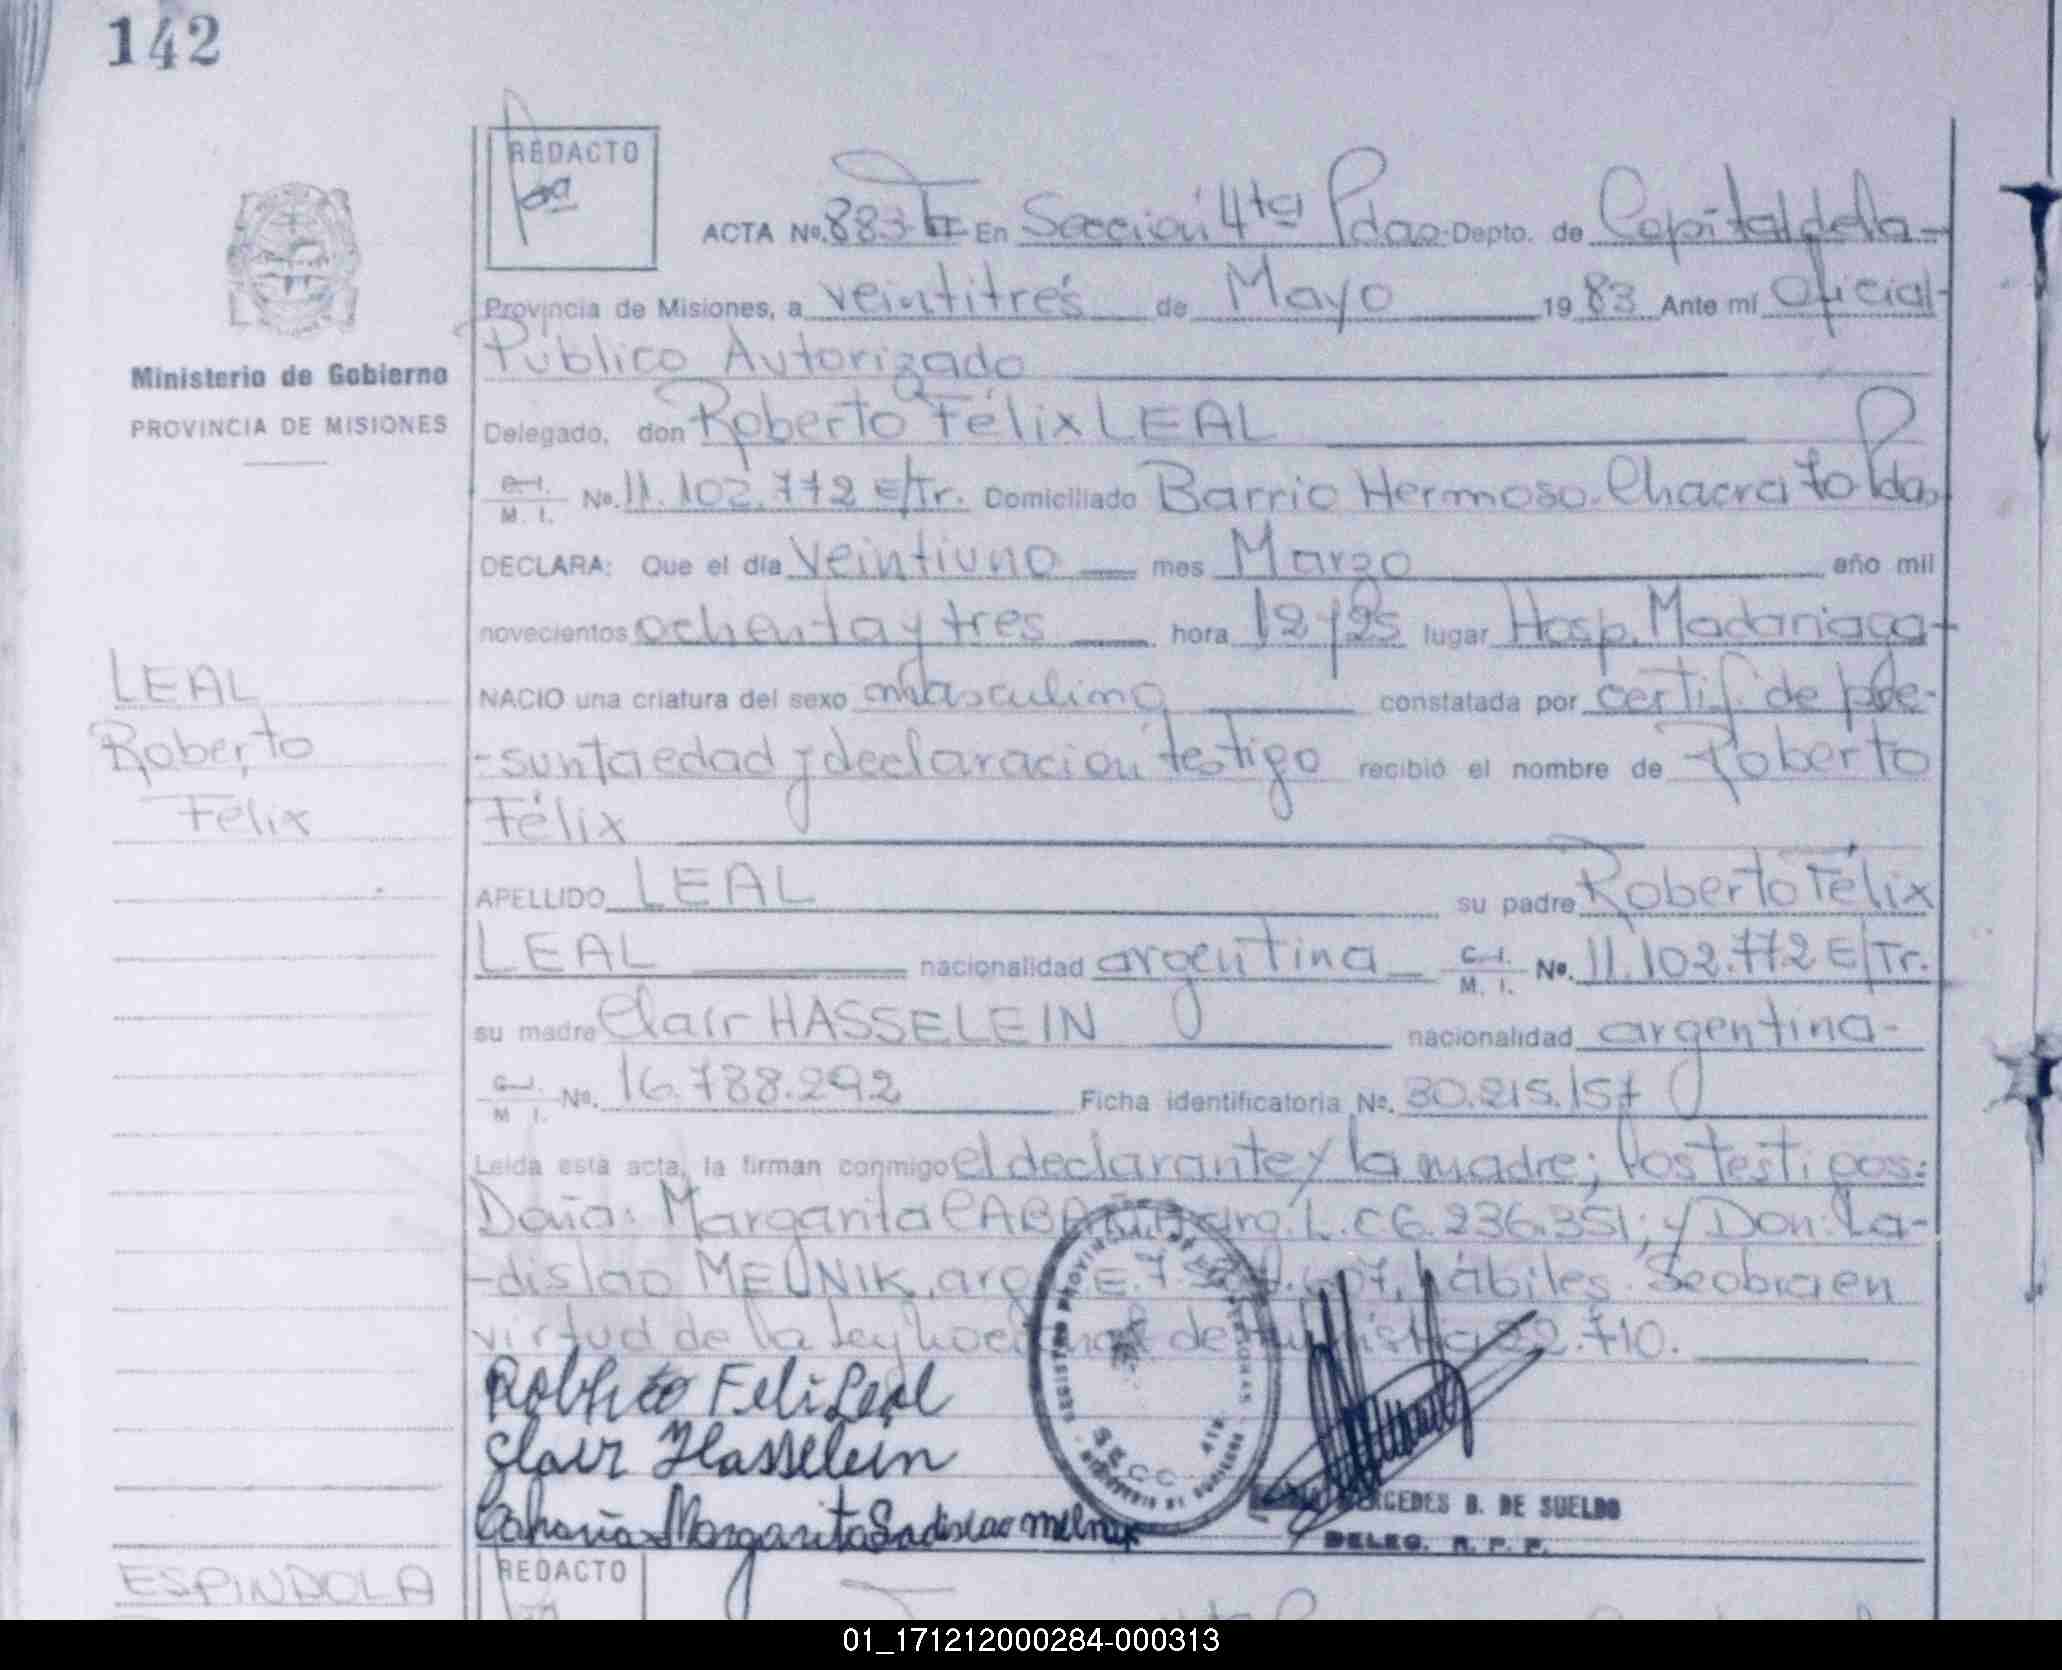 142
REDACTO
ACTA Nº. 883 En Sección 4ta Pdas-Depto. de Capital de la-
Provincia de Misiones, a veintitrés de Mayo 1983 Ante mí Oficial-
Público Autorizado
Ministerio de Gobierno
PROVINCIA DE MISIONES
Delegado, don Roberto Félix LEAL
C.I. M. I. No. 11.102.772 E/Tr. Domiciliado Barrio Hermoso. Chacra Pdas,
DECLARA: Que el día Veintiuno mes Marzo año mil
novecientos ochenta y tres hora 12 y 25 lugar Hosp. Madariaga
LEAL
Roberto
Félix
NACIO una criatura del sexo masculino constatada por certif. de pre-
-sunta edad y declaración testigo recibió el nombre de Roberto
Félix
APELLIDO LEAL su padre Roberto Félix
LEAL nacionalidad argentina C.I. M. I. Nº. 11.102.772 E/Tr.
su madre Clair HASSELEIN nacionalidad argentina-
C.I. M I. Nº. 16.788.292 Ficha identificatoria Nº. 30.215.157
Leída esta acta, la firman conmigo el declarante y la madre; los testigos:
Doña: Margarita arg. L.C 6.236.351; y Don: La-
-dislao MELNIK, arg. hábiles. Se obra en
virtud de la ley de 22.710.
Roberto Feli Leal
Clair Hasselein
Margarita Ladislao Melnik
REGISTRO PROVINCIAL DE LAS PERSONAS
SECC. 4ta
MERCEDES B. DE SUELDO
DELEG. R. P. P.
ESPINDOLA
REDACTO
01_171212000284-000313